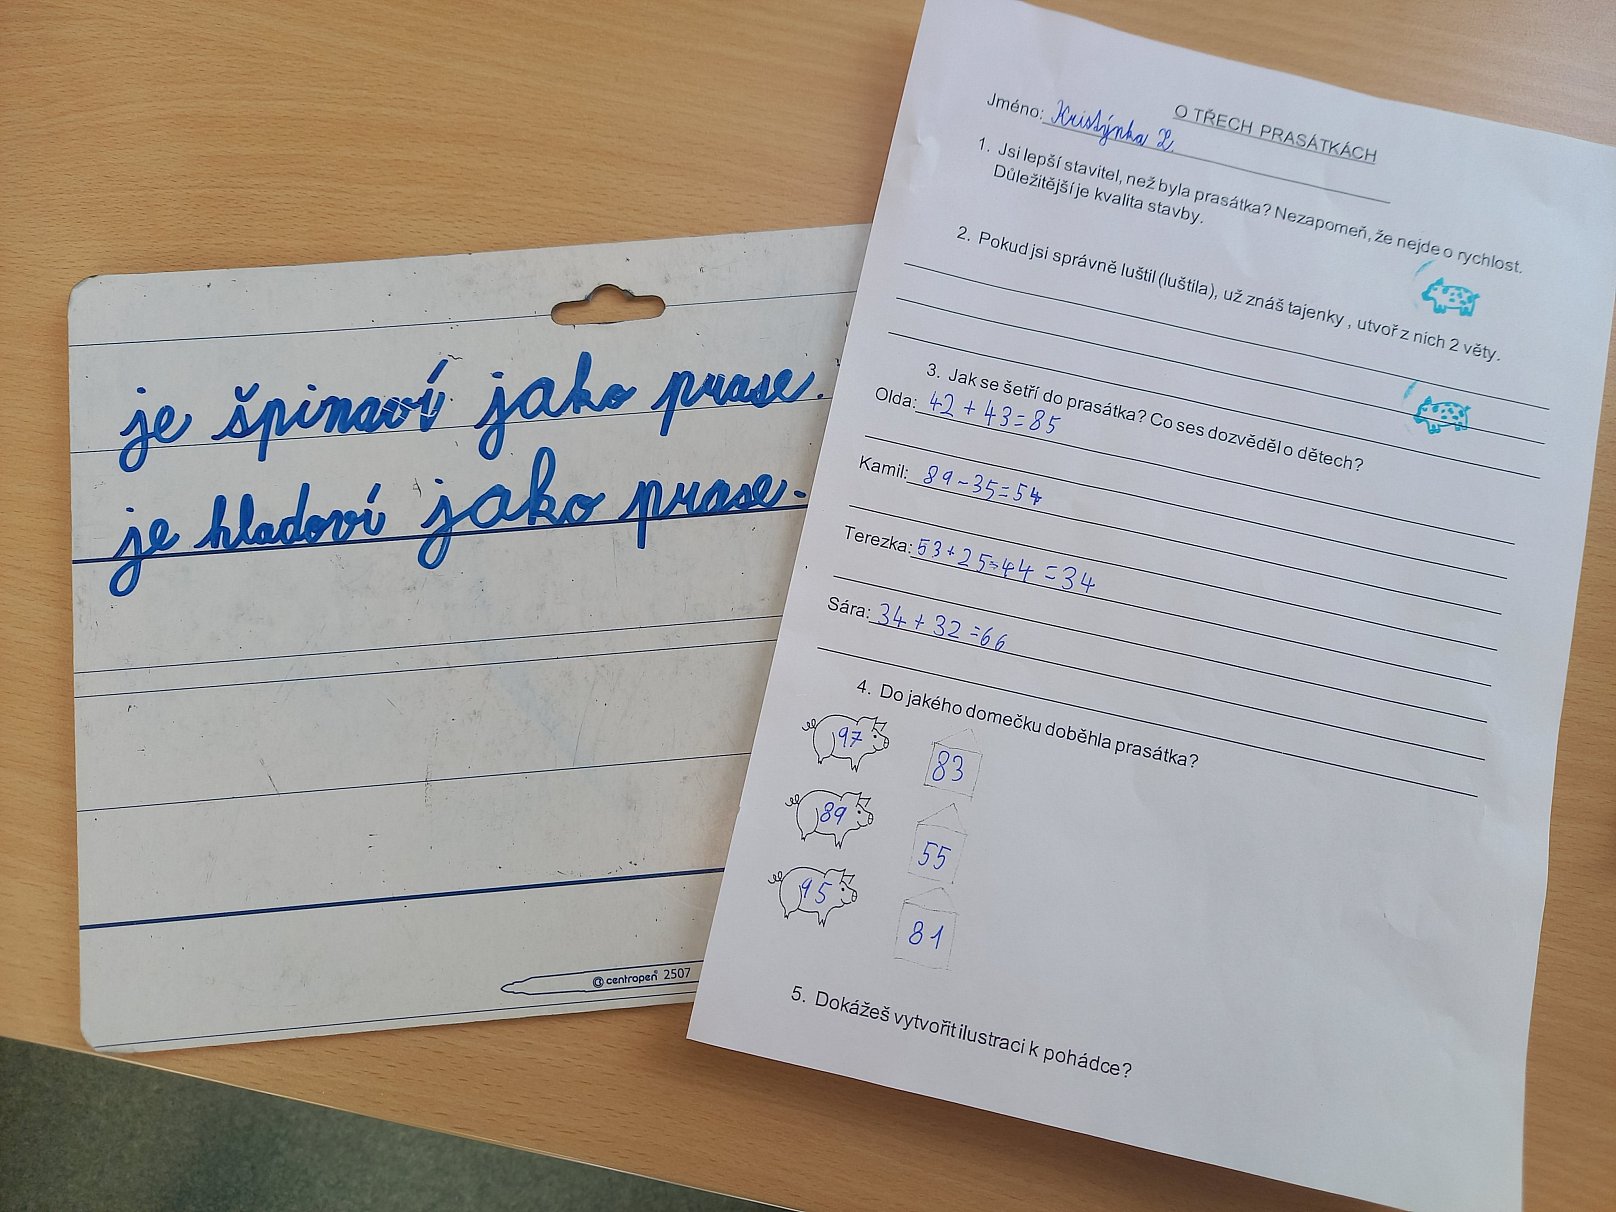 je špinaví jako prase.
je hladoví jako prase.
© centropen 2507
O TŘECH PRASÁTKÁCH
Jméno: Kristýnka Z.
1. Jsi lepší stavitel, než byla prasátka? Nezapomeň, že nejde o rychlost.
Důležitější je kvalita stavby.
2. Pokud jsi správně luštil (luštila), už znáš tajenky , utvoř z nich 2 věty.
3. Jak se šetří do prasátka? Co ses dozvěděl o dětech?
Olda: 42 + 43 = 85
Kamil: 89 - 35 = 54
Terezka: 53 + 25 = 44 = 34
Sára: 34 + 32 = 66
4. Do jakého domečku doběhla prasátka?
97 83
89 55
95 81
5. Dokážeš vytvořit ilustraci k pohádce?